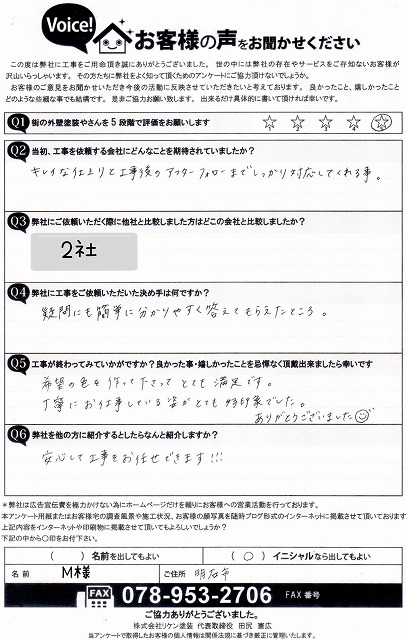 Voice!
お客様の声をお聞かせください
この度は弊社に工事をご用命頂き誠にありがとうございました。世の中には弊社の存在やサービスをご存知ないお客様が
沢山いらっしゃいます。その方たちに弊社をよく知って頂くためのアンケートにご協力頂けないでしょうか。
お客様のご意見をお聞かせいただき今後の活動に反映させていただきたいと考えております。良かったこと、嬉しかったこと
どのような些細な事でも結構です。是非ご協力お願い致します。出来るだけ具体的に書いて頂ければ幸いです。
Q1 街の外壁塗装やさんを5段階で評価をお願いします
Q2 当初、工事を依頼する会社にどんなことを期待されていましたか?
キレイな仕上りと工事後のアフターフォローまでしっかり対応してくれる事。
Q3 弊社にご依頼いただく際に他社と比較しました方はどこの会社と比較しましたか?
2社
Q4 弊社に工事をご依頼いただいた決め手は何ですか?
疑問にも簡単に分かりやすく答えてもらえたところ。
Q5 工事が終わってみていかがですか?良かった事・嬉しかったことを忌憚なく頂戴出来ましたら幸いです
希望の色を作って下さって とても満足です。
丁寧にお仕事している姿がとても好印象でした。
ありがとうございました
Q6 弊社を他の方に紹介するとしたらなんと紹介しますか?
安心して工事をお任せできます!!!
*弊社は広告宣伝費を極力かけない為にホームページだけを頼りにお客様への営業活動を行っております。
本アンケート用紙またはお客様宅の調査風景や施工状況、お客様の顔写真を随時ブログ形式のインターネットに掲載させて頂いております
上記内容をインターネットや印刷物に掲載させて頂いてもよろしいでしょうか?
下記の中から〇印をお付下さい。
( ) 名前を出してもよい ( ○ ) イニシャルなら出してもよい
名前 M様 ご住所 明石市
FAX 078-953-2706 FAX番号
ご協力ありがとうございました。
株式会社リケン塗装 代表取締役 田尻 憲広
当アンケートで取得したお客様の個人情報は関係法規に基づき厳正に管理いたします。